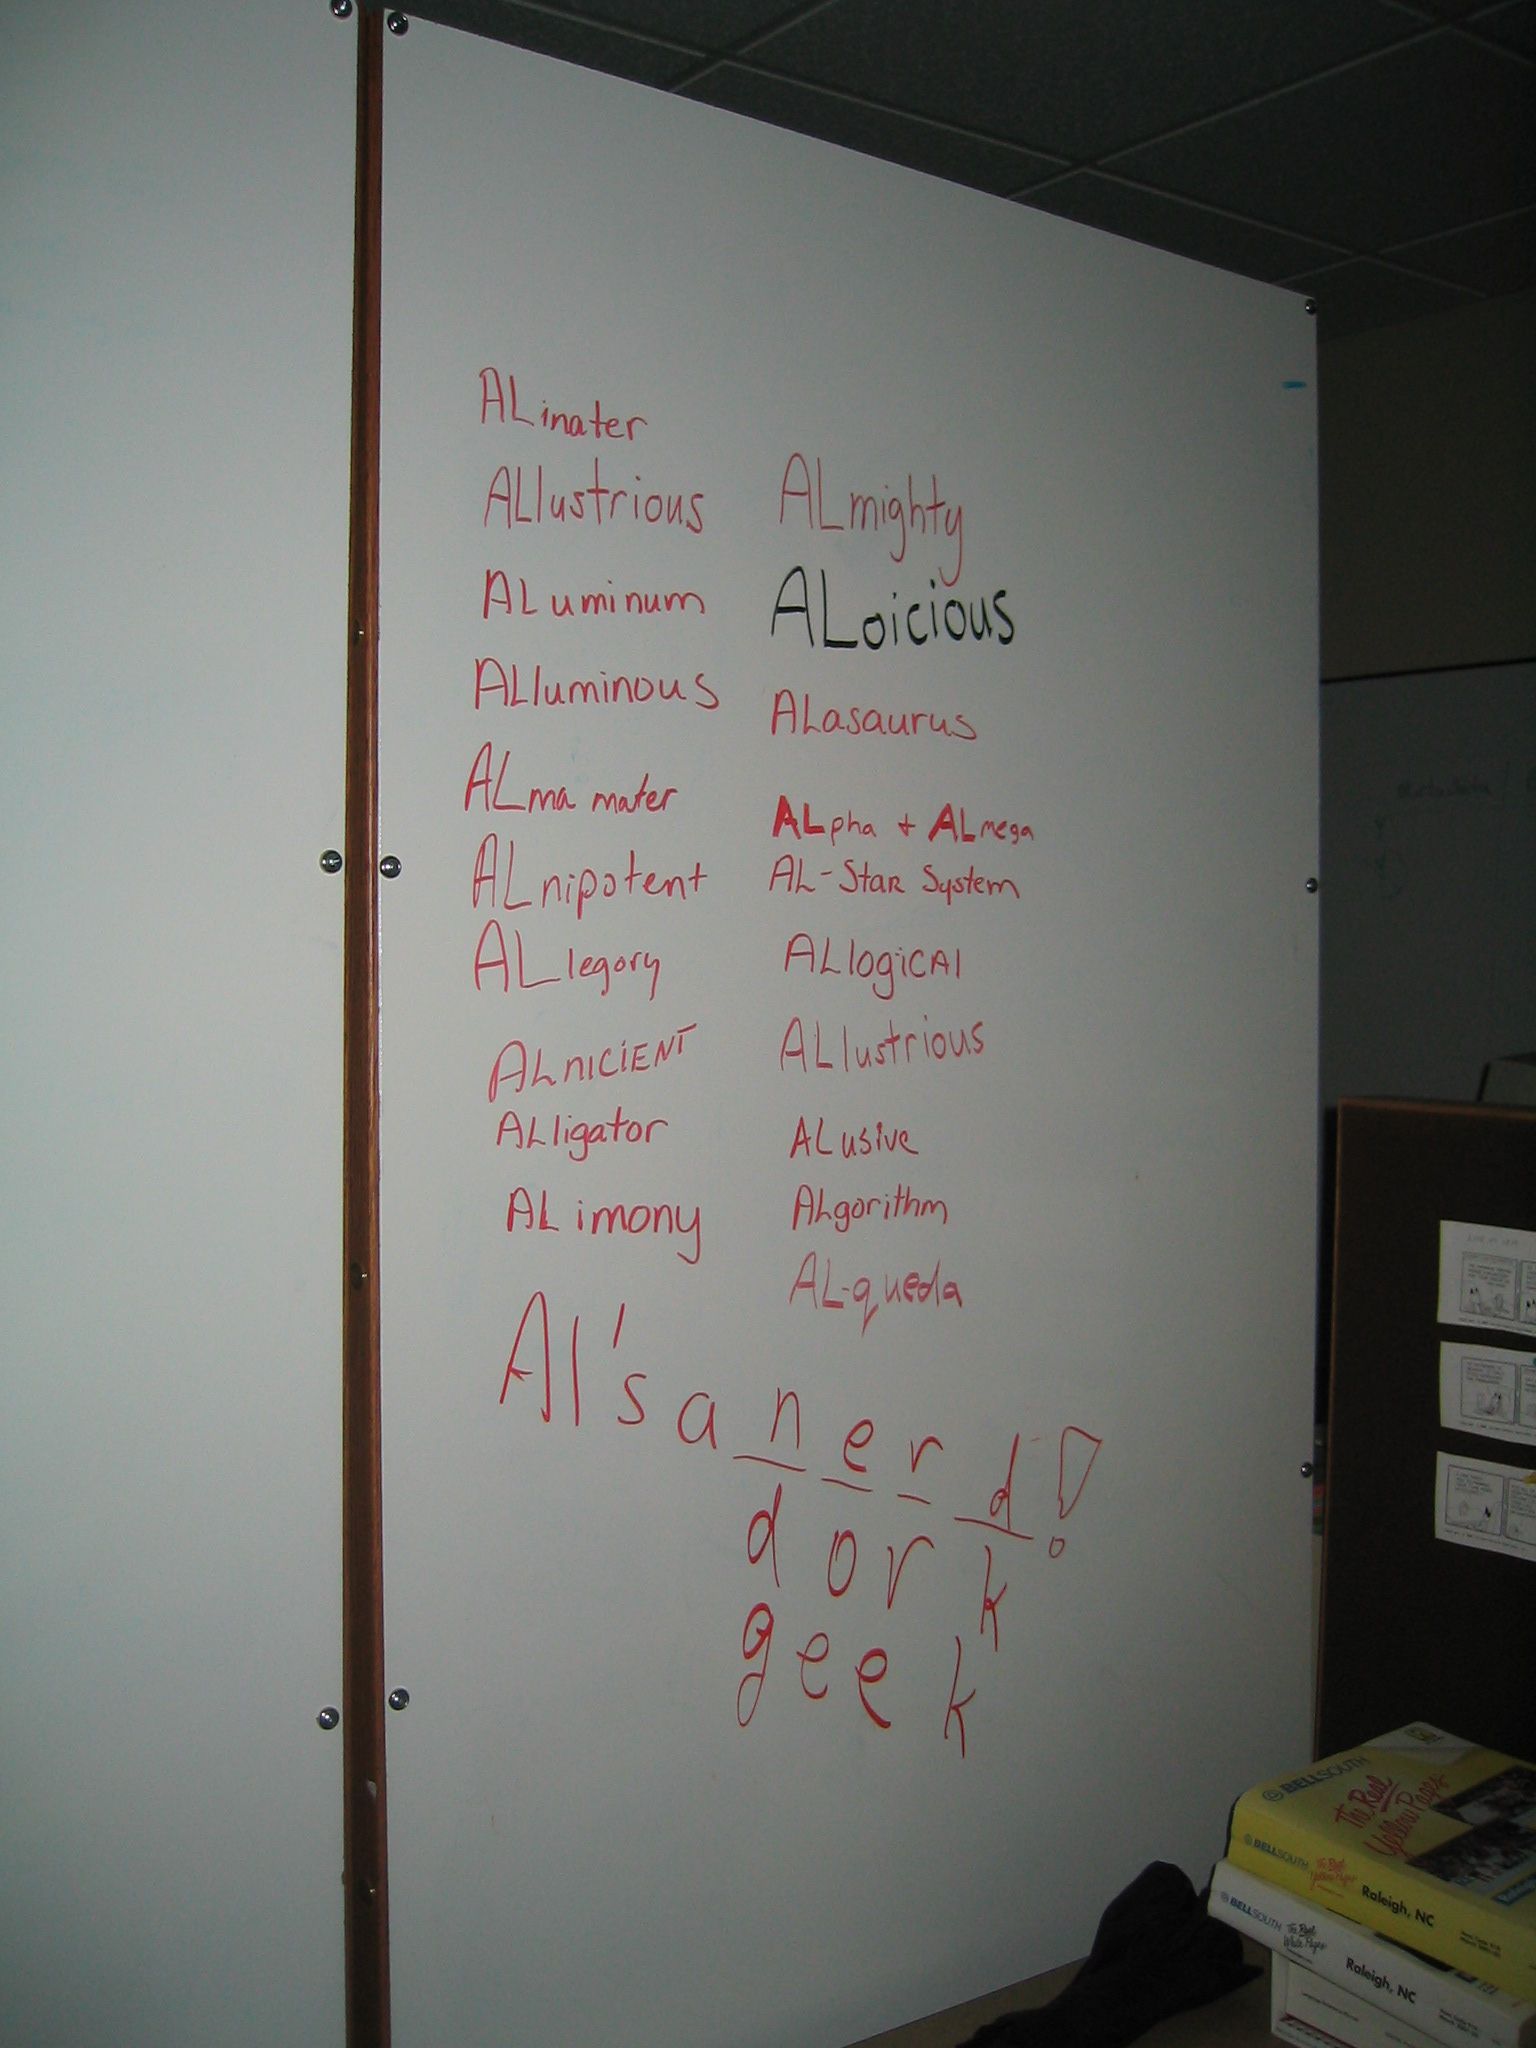 ALinater
ALlustrious
ALuminum
ALluminous
ALma mater
ALnipotent
ALlegory
ALNICIENT
ALligator
ALimony
ALmighty
ALoicious
ALasaurus
ALpha + ALmega
AL-Star System
ALlogical
ALlustrious
ALusive
ALgorithm
AL-queda
Al's a nerd!
dork
geek
BELLSOUTH
The Real
Yellow Pages
BELLSOUTH The Real Yellow Pages Raleigh, NC
BELLSOUTH The Real White Pages Raleigh, NC